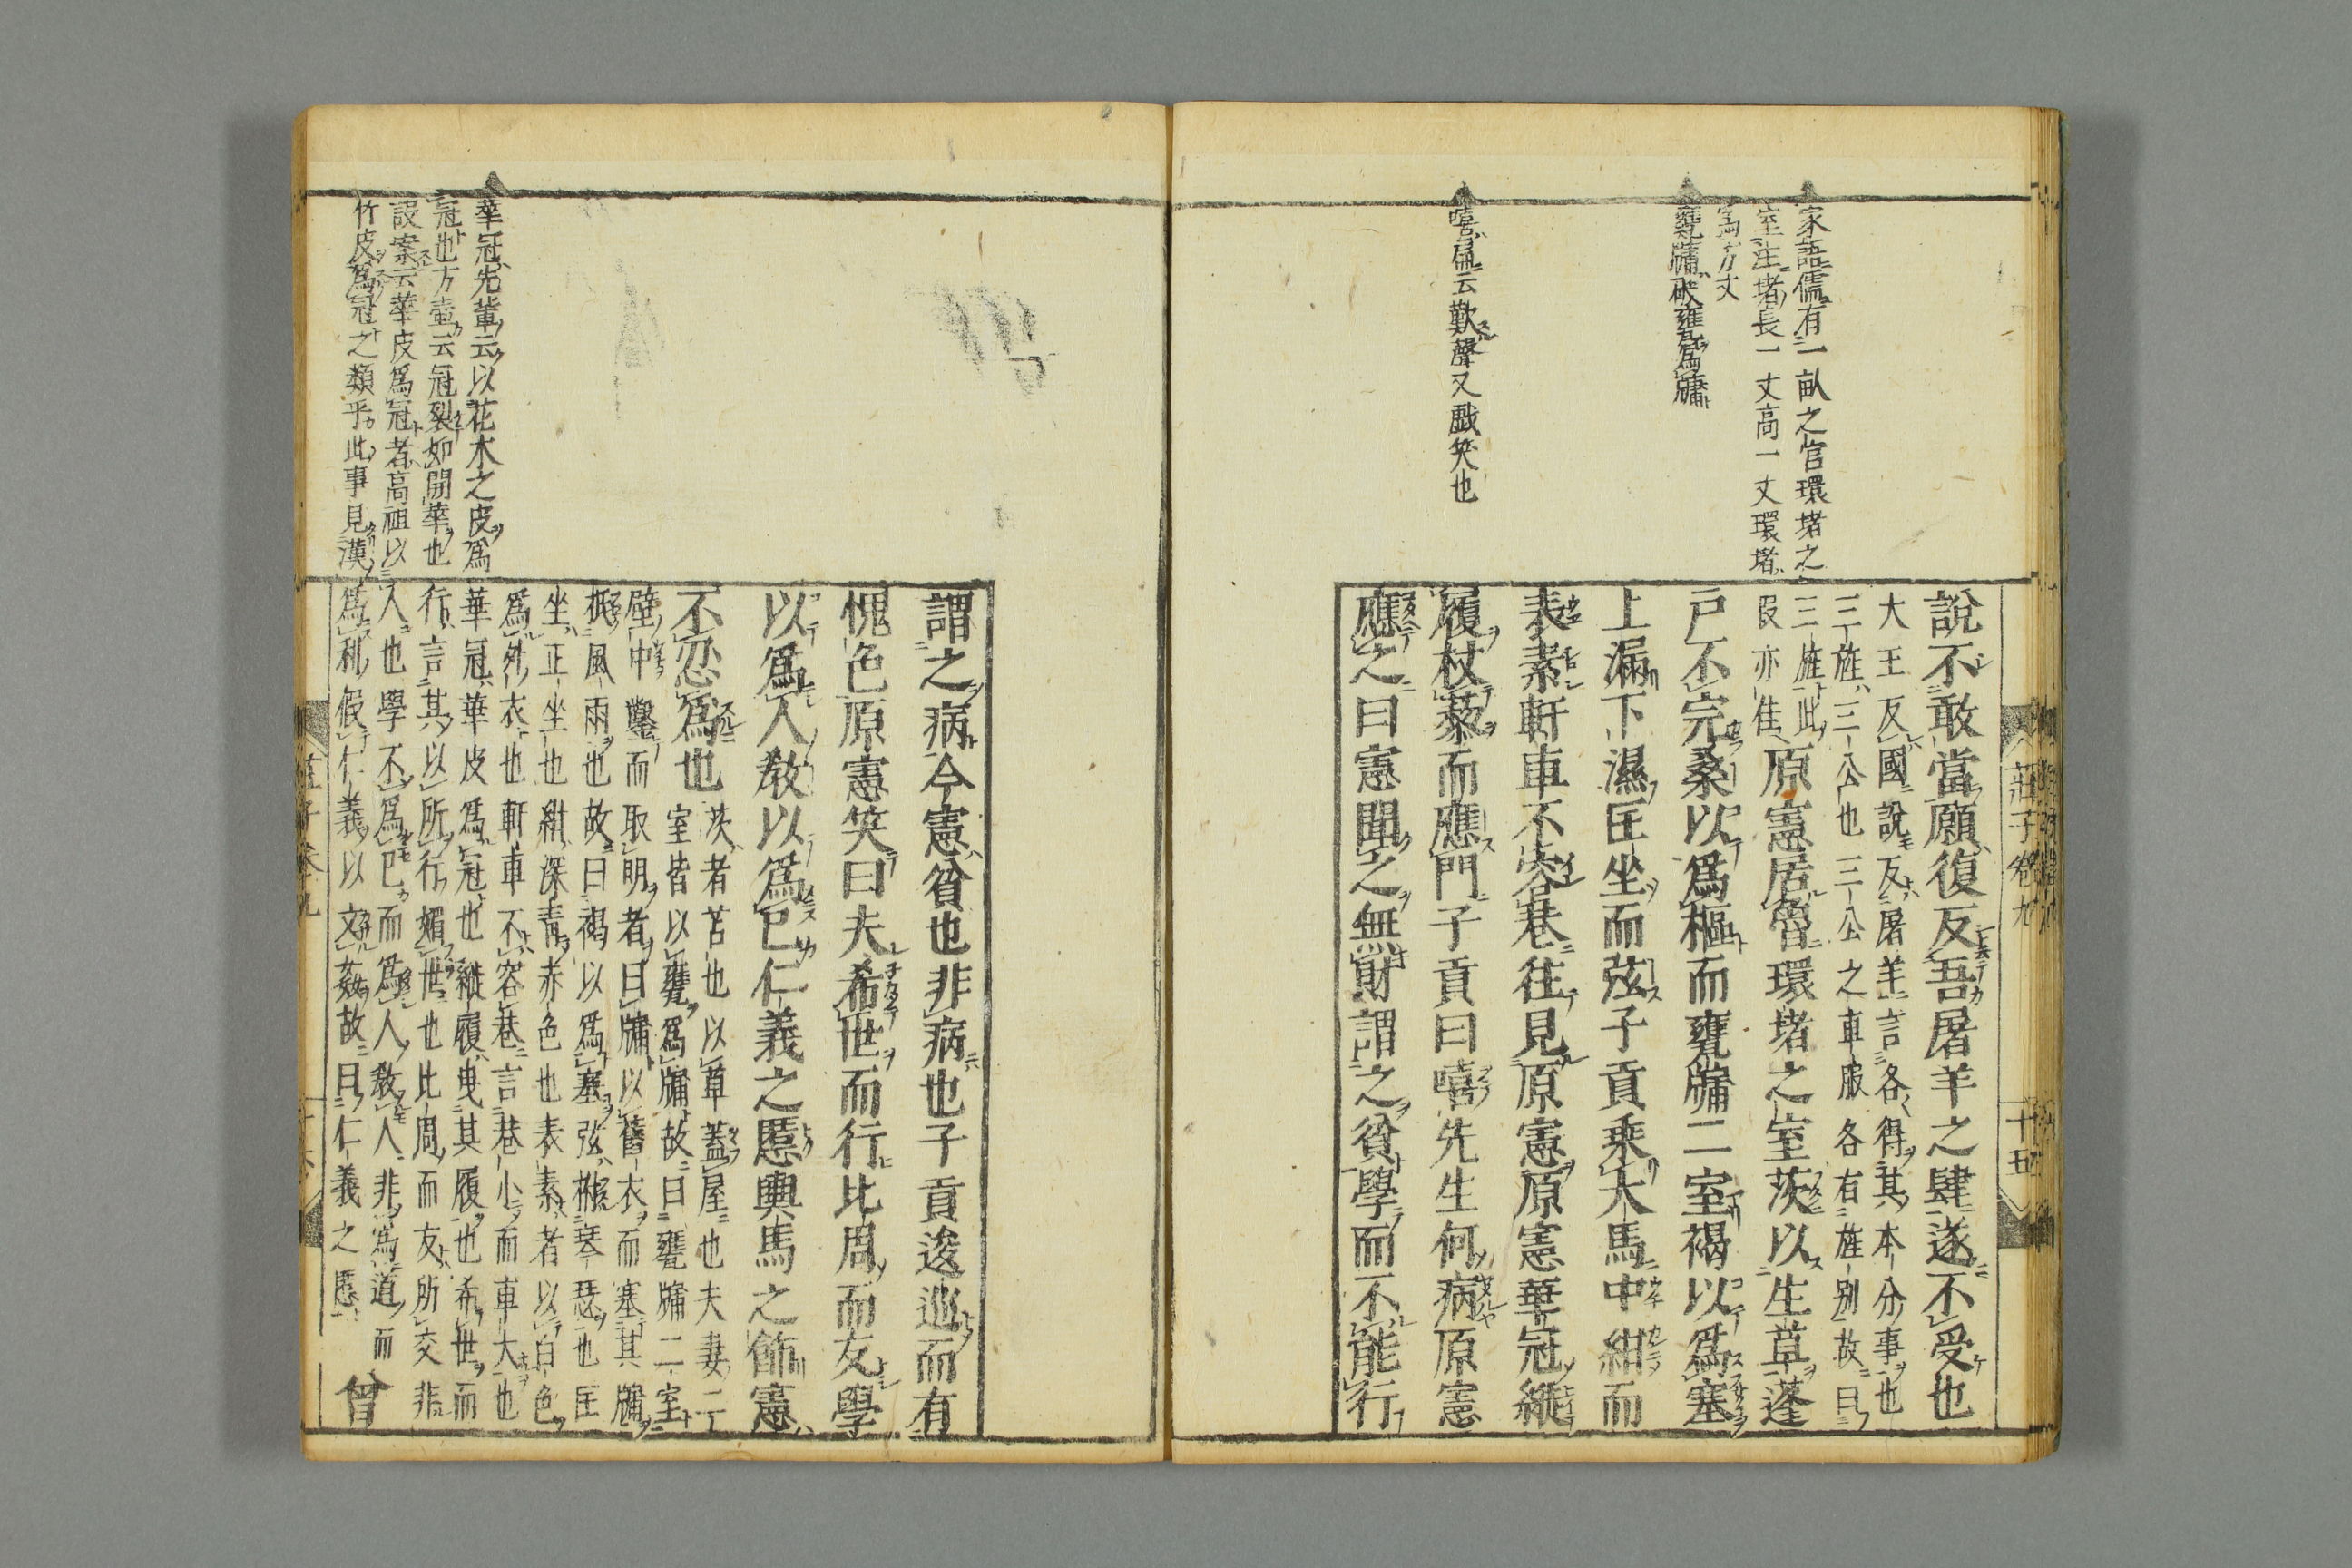 家語儒有一畝之宮環堵之
室注堵長一丈高一丈環堵
為方丈
甕牖破甕為牖
嘻扁云歎聲又戯笑也
說不敢當願復反吾屠羊之肆遂不受也
大王反國說反屠羊言各得其本分事也
三旌三公也三公之車服各有旌別故曰
三旌此
叚亦佳
原憲居魯環堵之室茨以生草蓬
戸不完桑以爲樞而甕牖二室褐以爲塞
上漏下濕匡坐而弦子貢乘大馬中紺而
表素軒車不容巷往見原憲原憲華冠縰
履杖藜而應門子貢曰嘻先生何病原憲
應之曰憲聞之無財謂之貧學而不能行
莊子卷九
十五
華冠先軰云以花木之皮爲
冠也方壷云冠裂如開華也
設案云華皮爲冠者高祖以
竹皮爲冠之類乎此事見漢
謂之病今憲貧也非病也子貢逡巡而有
愧色原憲笑曰夫希世而行比周而友學
以爲人教以爲已仁義之慝輿馬之飾憲
不忍爲也
茨者苫也以草蓋屋也夫妻二
室皆以甕爲牖故曰甕牖二室
壁中鑿而取明者曰牖以舊衣而塞其牖
抵風雨也故曰褐以爲塞弦琴瑟也匡
坐正坐也紺深青赤色也表素者以白色
爲外衣也軒車不容巷言巷小而車大也
華冠華皮爲冠也縰履曳其履也希世而
行言其以所行媚世也比周而友所交非
人也學不爲已而爲人敎人非爲道而
爲利假仁義以文姦故曰仁義之慝
曾
莊子卷九